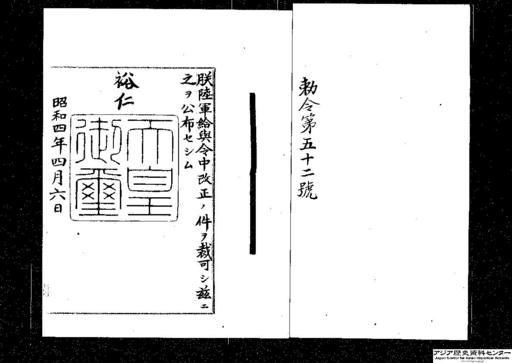 勅令第五十二號
朕陸軍給與令中改正ノ件ヲ裁可シ茲ニ
之ヲ公布セシム
裕仁
天皇御璽
昭和四年四月六日
アジア歴史資料センター
Japan Center for Asian Historical Records